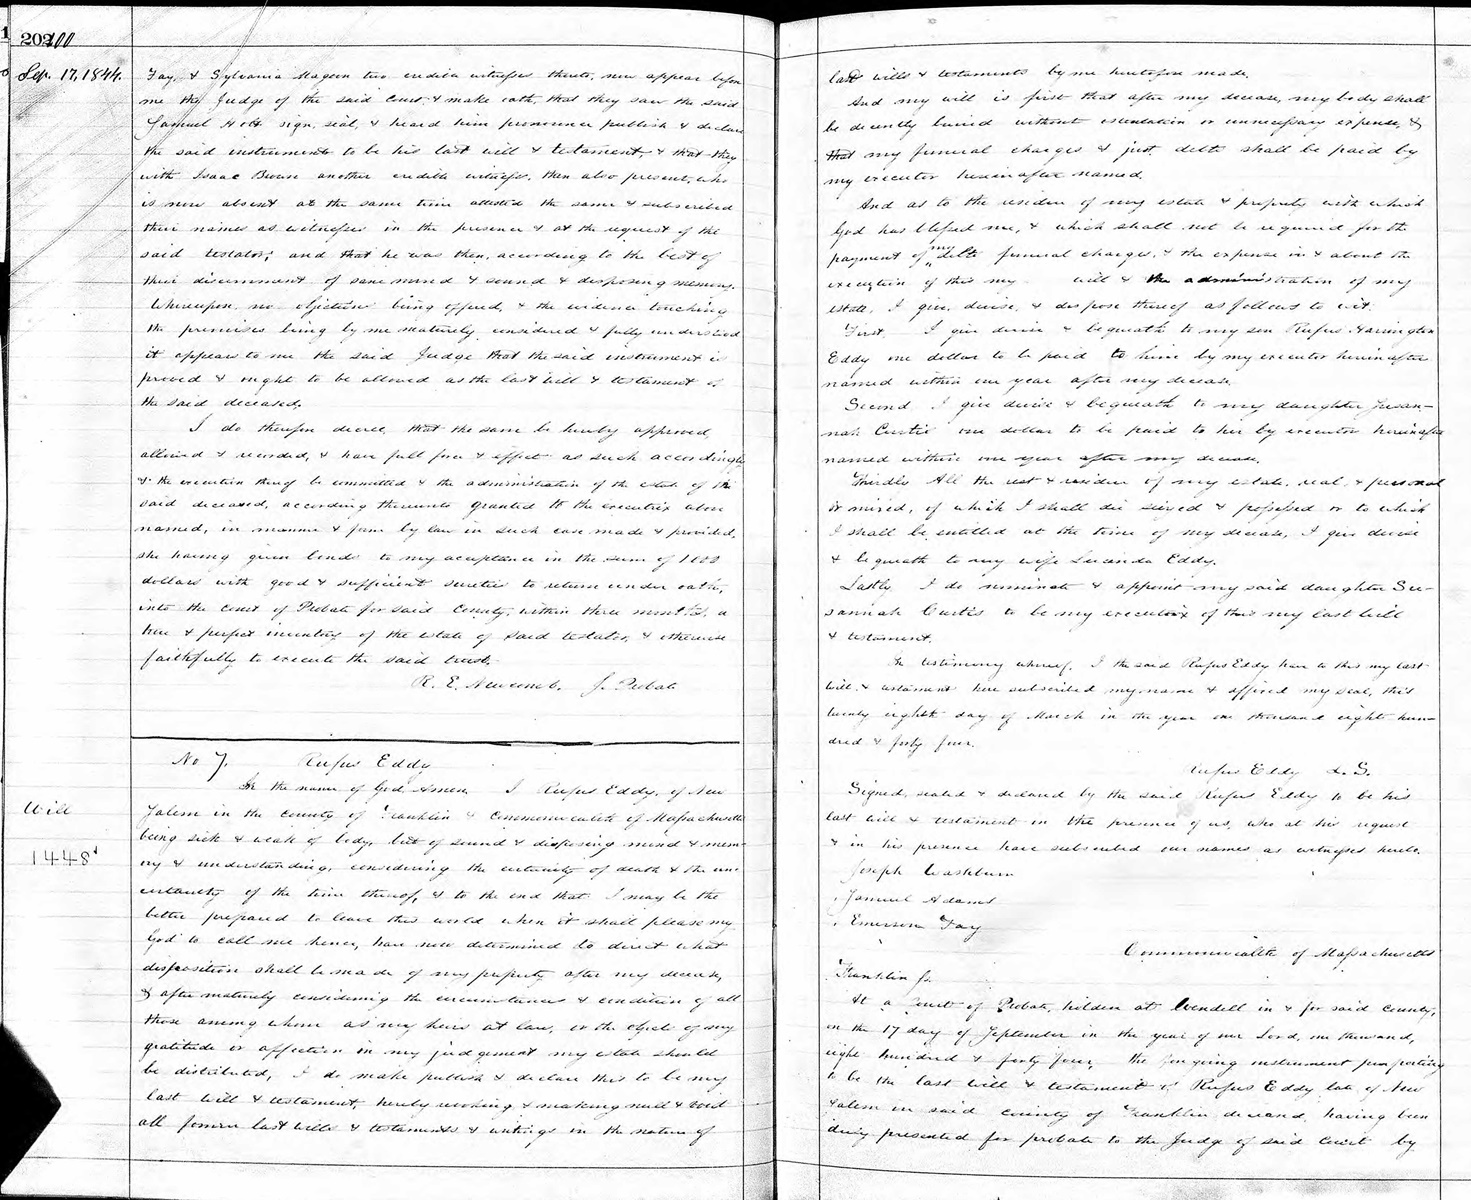 202 100
Sep. 17, 1844.
Fay, & Sylvania Magoon two credible witnesses thereto, now appear before
me the Judge of the said Court & make oath, that they saw the said
Samuel Holt sign, seal, & heard him pronounce publish & declare
the said instrument to be his last will & testament, & that they
with Isaac Bowse another credible witness, then also present, who
is now absent at the same time attested the same & subscribed
their names as witnesses in the presence & at the request of the
said testator; and that he was then, according to the best of
their discernment of sane mind & sound & disposing memory.
Whereupon no objection being offered, & the evidence touching
the premises being by me maturely considered & fully understood
it appears to me the said Judge that the said instrument is
proved & ought to be allowed as the last will & testament of
the said deceased.
I do therefore decree, that the same be hereby approved,
allowed & recorded, & have full force & effect as such accordingly
& the execution thereof be committed & the administration of the estate of the
said deceased, according thereunto granted to the executrix above
named, in manner & form by law in such case made & provided,
she having given bonds to my acceptance in the sum of 1000
dollars with good & sufficient sureties to return under oath,
into the Court of Probate for said County, within three months, a
true & perfect inventory of the estate of said testator, & otherwise
faithfully to execute the said trust.
R. E. Newcomb, J. Probate
No 7. Rufus Eddy
Will
1448
In the name of God Amen I Rufus Eddy, of New
Salem in the county of Franklin & Commonwealth of Massachusetts
being sick & weak of body, but of sound & disposing mind & mem-
ory & understanding, considering the certainty of death & the un-
certainty of the time thereof, & to the end that I may be the
better prepared to leave this world when it shall please my
God to call me hence, have now determined to direct what
disposition shall be made of my property after my decease,
& after maturely considering the circumstances & condition of all
those among whom as my heirs at law, or the objects of my
gratitude or affection in my judgement my estate should
be distributed, I do make publish & declare this to be my
last will & testament, hereby revoking & making null & void
all former last wills & testaments & writings in the nature of
last wills & testaments by me heretofore made.
And my will is first that after my decease, my body shall
be decently buried without ostentation or unnecessary expense, &
that my funeral charges & just debts shall be paid by
my executor hereinafter named.
And as to the residue of my estate & property with which
God has blessed me, & which shall not be required for the
payment of my debts funeral charges, & the expense in & about the
execution of this my will & the administration of my
estate, I give, devise, & dispose thereof as follows to wit.
First. I give devise & bequeath to my son Rufus Harrington
Eddy one dollar to be paid to him by my executor hereinafter
named within one year after my decease.
Second I give devise & bequeath to my daughter Susan-
nah Curtis one dollar to be paid to her by executor hereinafter
named within one year after my decease.
Thirdly All the rest & residue of my estate, real, & personal
or mixed, of which I shall die seized & possessed or to which
I shall be entitled at the time of my decease, I give devise
& bequeath to my wife Lucinda Eddy.
Lastly I do nominate & appoint my said daughter Su-
sannah Curtis to be my executrix of this my last will
& testament.
In testimony whereof, I the said Rufus Eddy have to this my last
will & testament here subscribed my name & affixed my seal, this
twenty eighth day of March in the year one thousand eight hun-
dred & forty four.
Rufus Eddy L.S.
Signed, sealed & declared by the said Rufus Eddy to be his
last will & testament in the presence of us, who at his request
& in his presence have subscribed our names as witnesses hereto.
Joseph Washburn
Samuel Adams
Emerson Fay
Commonwealth of Massachusetts
Franklin Ss.
At a Court of Probate, holden at Wendell in & for said County,
on the 17 day of September in the year of our Lord, one thousand,
eight hundred & forty four, the foregoing instrument purporting
to be the last will & testament of Rufus Eddy late of New
Salem in said county of Franklin deceased, having been
duly presented for probate to the Judge of said Court by